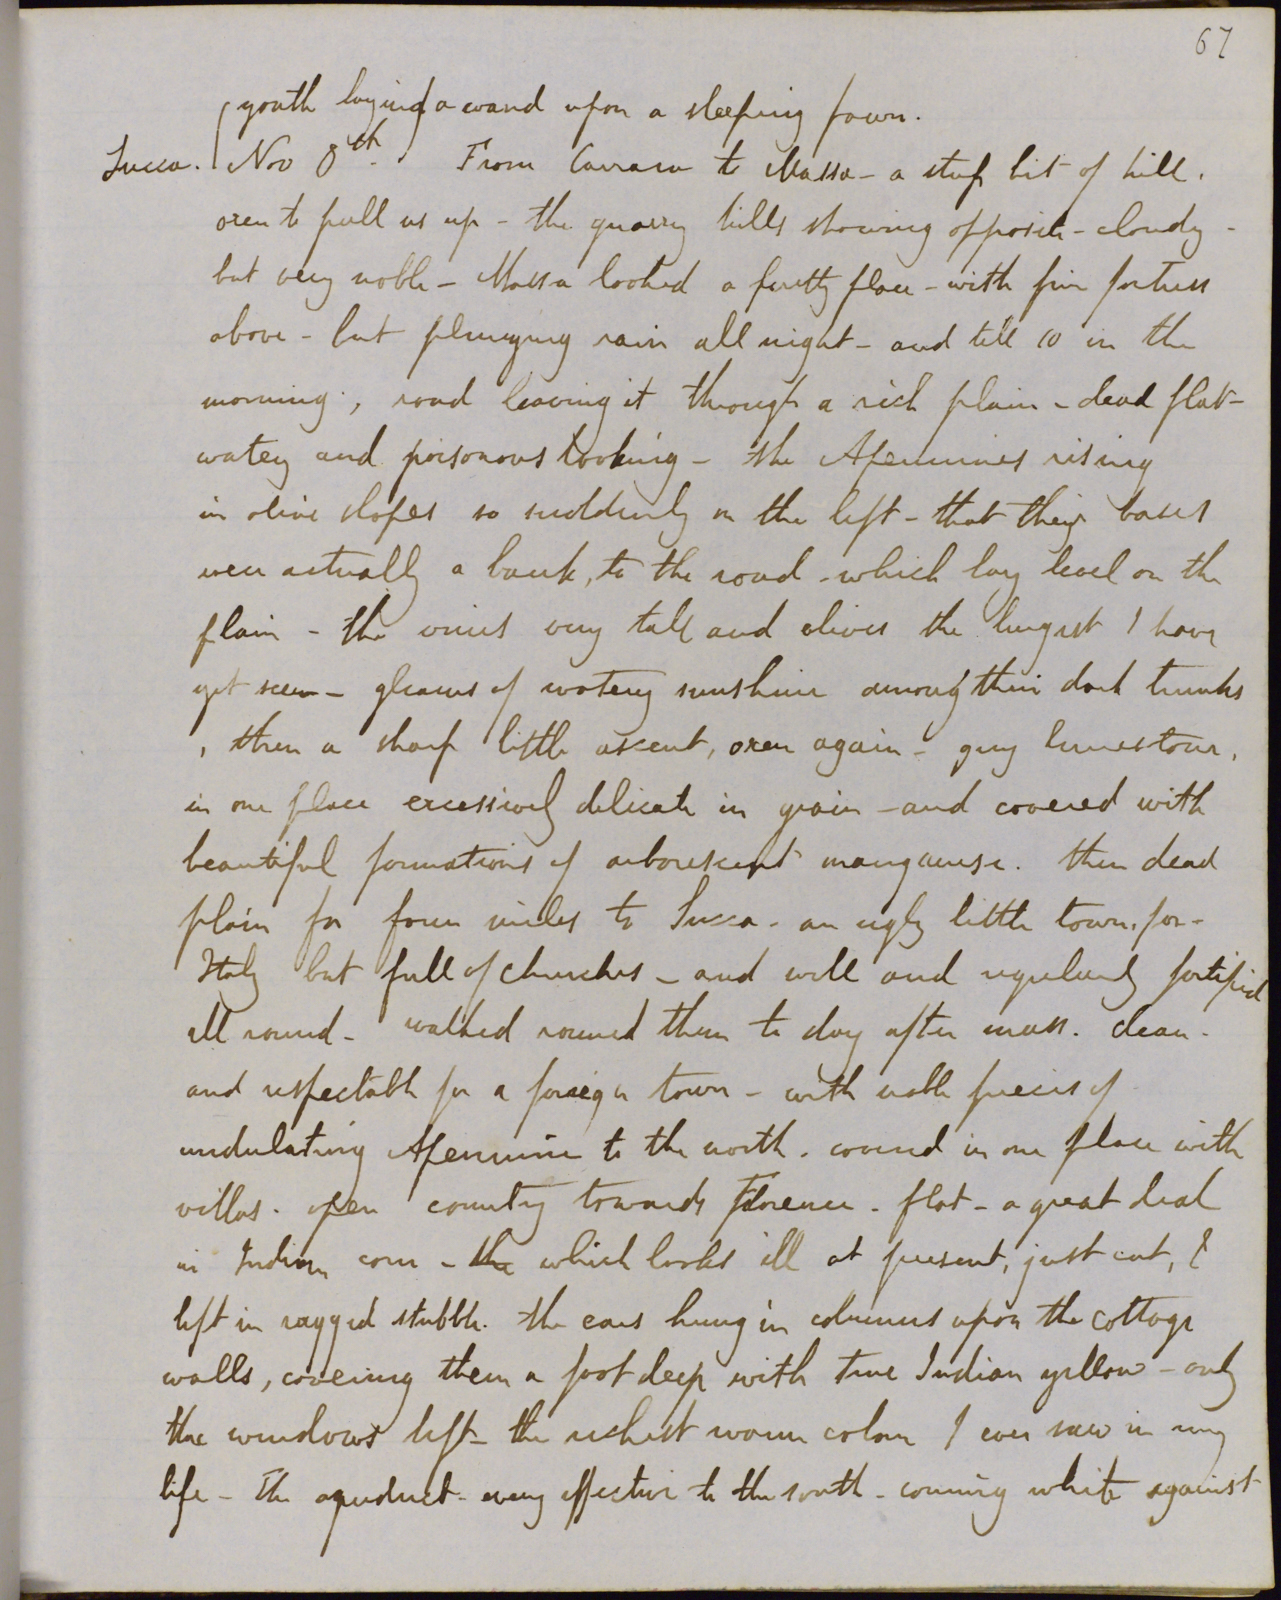 67
youth laying a wand upon a sleeping fawn.
Lucca. Nov 8th. From Carrara to Massa - a steep bit of hill.
oxen to pull us up - the quarry hills showing opposite - cloudy -
but very noble - Massa looked a pretty place - with fine fortress
above - but plunging rain all night - and till 10 in the
morning; road leaving it through a rich plain - dead flat -
watery and poisonous looking - the Apennines rising
in olive slopes so suddenly on the left - that their bases
were actually a bank, to the road - which lay level on the
plain - the vines very tall and olives the largest I have
yet seen - gleams of watery sunshine among their dark trunks
, then a sharp little ascent, oxen again - grey limestone,
in one place excessively delicate in grain - and covered with
beautiful formations of arborescent manganese. then dead
plain for four miles to Lucca - an ugly little town, for -
Italy but full of churches - and well and regularly fortified
all round - walked round them to day after mass. clean -
and respectable for a foreign town - with noble pieces of
undulating Apennine to the north. covered in one place with
villas. open country towards Florence. flat - a great deal
in Indian corn - the which looks ill at present, just cut, &
left in ragged stubble. the ears hung in columns upon the cottage
walls, covering them a foot deep with true Indian yellow - only
the windows left - the richest warm colour I ever saw in my
life - The aqueduct - very effective to the south - coming white against